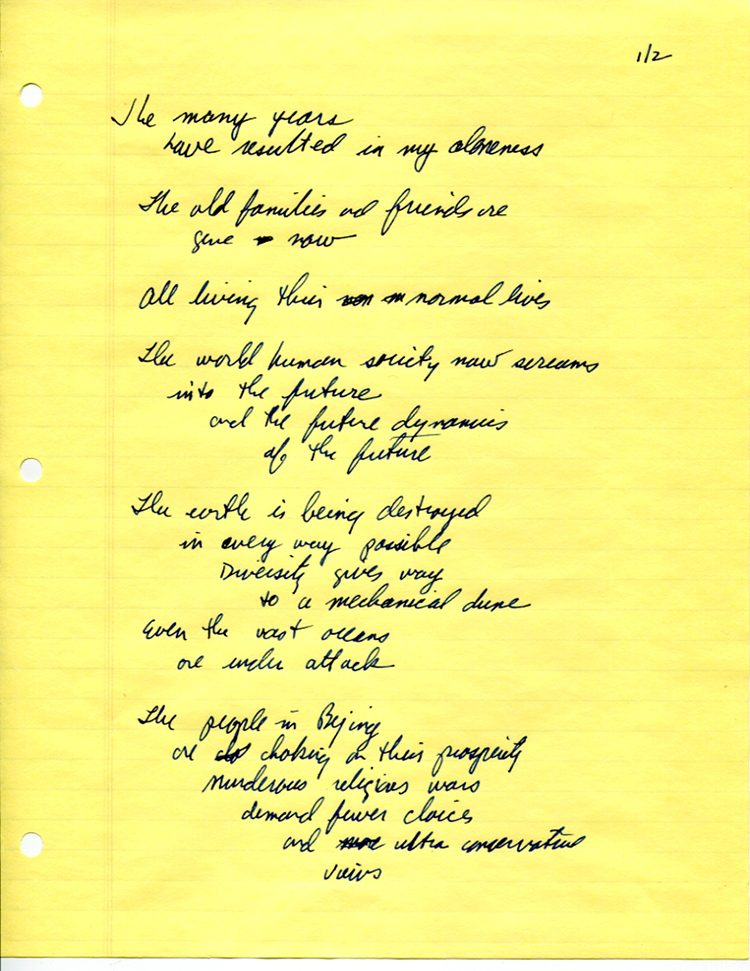 1/2
The many years
have resulted in my aloneness
The old families and friends are
gone now
All living their normal lives
The world human society now screams
into the future
and the future dynamics
of the future
The earth is being destroyed
in every way possible
Diversity gives way
to a mechanical dune
Even the vast oceans
are under attack
The people in Bejing
are choking on their prosperity
Murderous religious wars
demand fewer choices
and ultra conservative
views